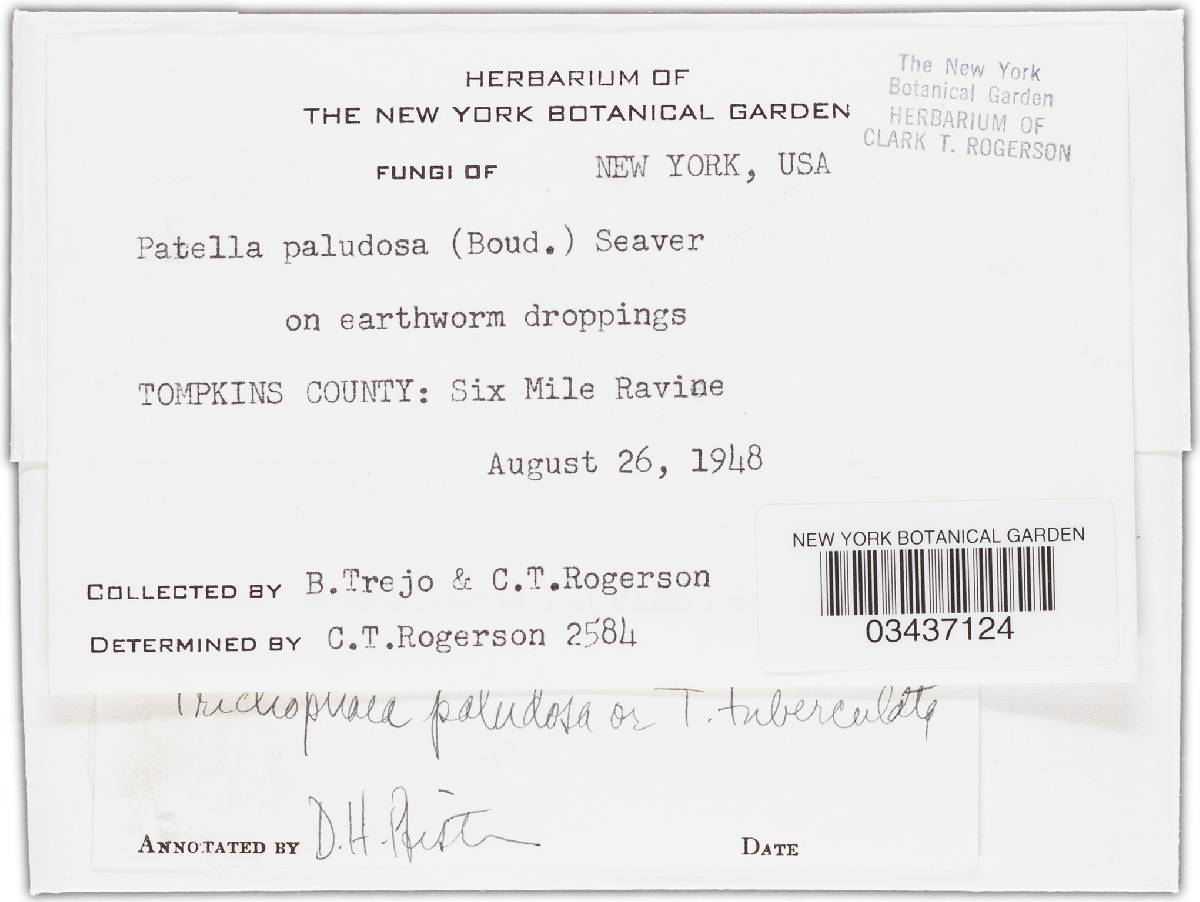 HERBARIUM OF
THE NEW YORK BOTANICAL GARDEN
The New York
Botanical Garden
HERBARIUM OF
CLARK T. ROGERSON
FUNGI OF NEW YORK, USA
Patella paludosa (Boud.) Seaver
on earthworm droppings
TOMPKINS COUNTY: Six Mile Ravine
August 26, 1948
NEW YORK BOTANICAL GARDEN
03437124
COLLECTED BY B.Trejo & C.T.Rogerson
DETERMINED BY C.T.Rogerson 2584
Trichophaea paludosa or T. tuberculata
ANNOTATED BY D.H.Pfister DATE